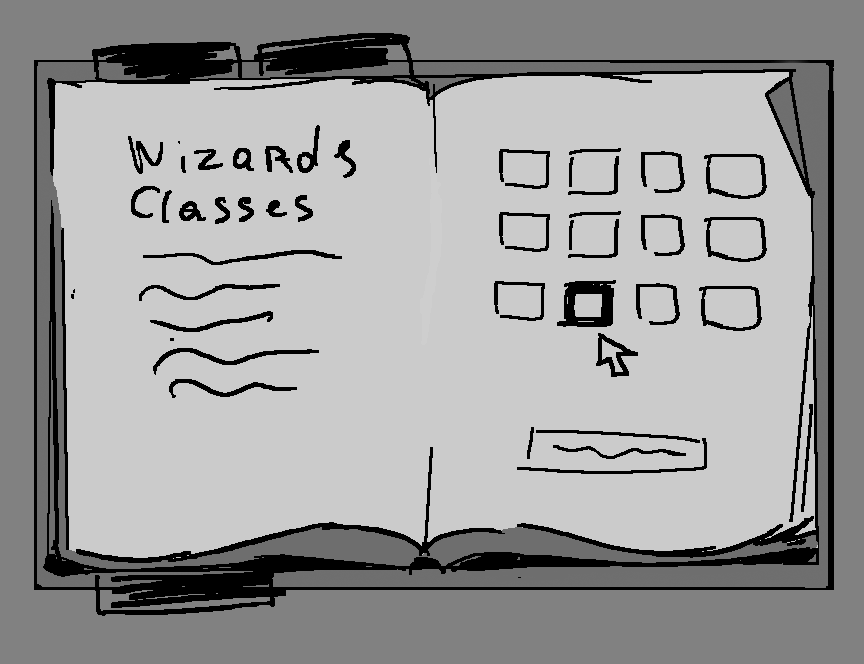 Wizards
Classes